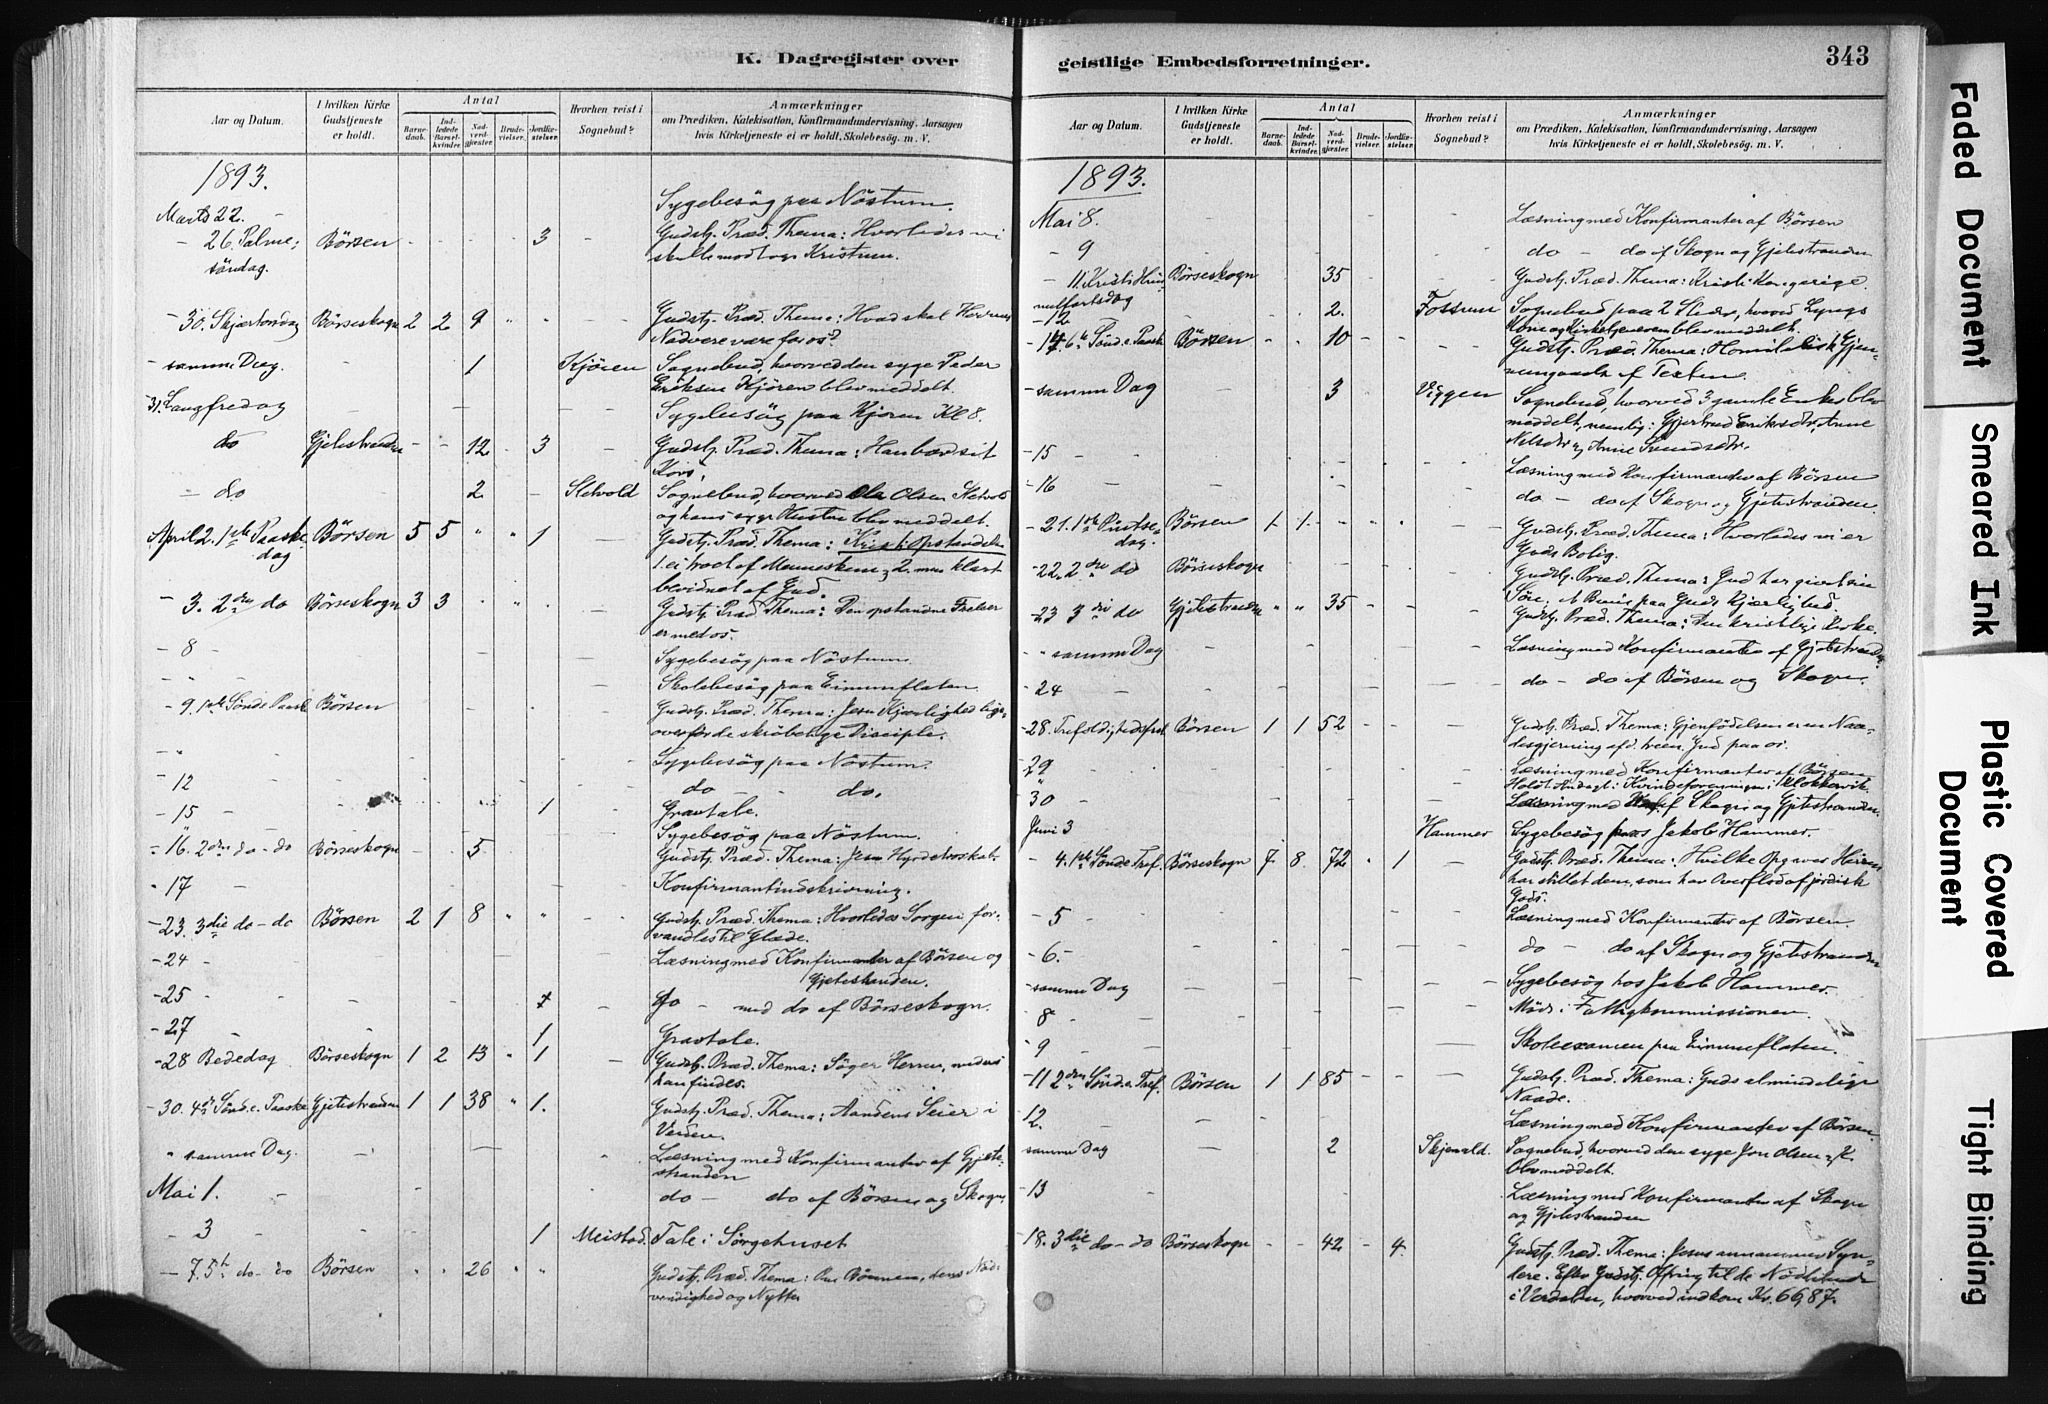 K. Dagregister over
Aar og Datum.
I hvilken Kirke Gudstjeneste er holdt.
Antal
Barnedaab.
Indledede Barselkvinder.
Nadverdgjæster.
Brudevielser.
Jordfæstelser.
Hvorhen reist i Sognebud?
Anmærkninger
om Prædiken, Katekisation, Konfirmandundervisning, Aarsagen
hvis Kirketjeneste ei er holdt, Skolebesög. m. V.
1893.
Marts 22. - Sygebesög paa Nöstum.
- 26. Palme- Börsen - - - - 3 - Gudstj. Præd. Thema: Hvorledes vi
söndag. skulle modtage Kristum.
- 30. Skjærtorsdag Börseskogn 2 2 9 " " - Gudstj. Præd. Thema: Hvad skal Herrens
Nadvere være for os?
- samme Dag. - 1 Kjören Sognebud, hvorved den syge Peder
Eriksen Kjören blev meddelt.
31. Langfredag - - - - - Sygebesög paa Kjören Kl 8.
do Gjetestranden - - 12 - 3 - Gudstj. Præd. Thema: Han bar sit
Kors.
- do 2 - Sletvold Sognebud, hvorved Ole Olsen Sletvold
og hans syge Hustru blev meddelt.
April 2. 1ste Paaske- Börsen 5 5 " " 1 - Gudstj. Præd. Thema: Kristi Opstandelse
dag 1. ei troet af Menneskene, 2. men klart
bevidnet af Gud.
- 3. 2den do Börseskogn 3 3 - " - - Gudstj. Præd. Thema: Den opstandne Frelser
er med os.
- 8 - Sygebesög paa Nöstum.
" Skolebesög paa Eimmeflaten.
- 9. 1ste Sönd e Paaske Börsen Gudstj. Præd. Thema: Jesu Kjærlighed lige-
overfor de skröbelige Disciple.
- " Sygebesög paa Nöstum.
- 12 do - do.
- 15 - 1 Gravtale.
" Sygebesög paa Nöstum.
- 16. 2den do - do Börseskogn - - 5 - Gudstj. Præd. Thema: Jesu Hyrdetroskab.
- 17 - Konfirmantindskrivning.
- 23. 3die do - do Börsen 2 1 8 " " - Gudstj. Præd. Thema: Hvorledes Sorgen for-
vandles til Glæde.
- 24 - Læsning med Konfirmanter af Börsen og
Gjetestranden.
- 25 - do - med do af Börseskogn.
- 27 - 1 Gravtale.
- 28 Bededag Börseskogn 1 2 13 " 1 - Gudstj. Præd. Thema: Söger Herren, medens
han findes.
- 30. 4de Sönd. e. Paaske Gjetestranden 1 1 38 " 1. Gudstj. Præd. Thema: Aandens Seier i
Verden.
" samme Dag. - - Læsning med Konfirmanter af Gjete-
stranden
Mai 1. - do - do af Börsen og Skogn.
- 3 - 1 Meistad. Tale i Sörgehuset
- 7. 5te do - do Börsen " " 26 " " Gudstj. Præd. Thema: Om Bönnen, dens Nöd-
vendighed og Nytte
geistlige Embedsforretninger.
343
Aar og Datum.
I hvilken Kirke Gudstjeneste er holdt.
Antal
Barnedaab.
Indledede Barselkvinder.
Nadverdgjæster.
Brudevielser.
Jordfæstelser.
Hvorhen reist i Sognebud?
Anmærkninger
om Prædiken, Katekisation, Konfirmandundervisning, Aarsagen
hvis Kirketjeneste ei er holdt, Skolebesög. m. V.
1893.
Mai 8. - Læsning med Konfirmanter af Börsen
- 9 do - do af Skogn og Gjetestranden
- 11. Kristi Him- Börseskogn - - 35 - - Gudstj. Præd. Thema: Kristi Kongerige.
melfartsdag
- 12 2. Fossum Sognebud paa 2 Steder, hvorved
Kone og Kirketjeneren blev meddelt.
- 14. 6te Sönd. e. Paaske Börsen - - 10 - - Gudstj. Præd. Thema: Homiletisk Gjen-
nemgaaelse af Texten.
- samme Dag 3 Viggen Sognebud, hvorved 3 gamle Enker blev
meddelt, nemlig: Gjertrud Eriksdtr, Anne
Nelsdtr og Anne
- 15 - Læsning med Konfirmanter af Börsen
- 16 do - do af Skogn og Gjetestranden
- 21. 1ste Pintse- Börsen 1 1 - - Gudstj. Præd. Thema: Hvorledes vi er
dag. Guds Bolig.
- 22. 2den do Börseskogn Gudstj. Præd. Thema: Gud har givet sin
Sön, et Bevis paa Guds Kjærlighed.
- 23 3die do Gjetestranden " " 35 - - Gudstj. Præd. Thema: Den kristelige Kirke.
- " samme Dag - Læsning med Konfirmanter af Gjetestranden
- 24 - do - do af Börsen og Skogn.
- 28. Trefoldighedsfest Börsen 1 1 52 - - Gudstj. Præd. Thema: Gjenfödelsen er en Naa-
desgjerning af d. treen. Gud paa os.
- 29 Læsning med Konfirmanter af Börsen
" Holdt Andagt i Kvindeforeningen i Klokkervik.
- 30 - Læsning med Konf. af Skogn og Gjetestranden.
Juni 3 Hammer Sygebesög hos Jakob Hammer.
- 4. 1ste Sönd e Tref. Börseskogn 7. 8. 72 - 1 - Gudstj. Præd. Thema: Hvilke Opgaver Herren
har stillet dem, som har Overflod af jordisk
Gods.
- 5 Læsning med Konfirmanter af Börsen.
- 6. - do - do af Skogn og Gjetestranden
- samme Dag Sygebesög hos Jakob Hammer.
- 8 - Möde i Fattigkommissionen.
- 9 - Skoleexamen paa Eimmeflaten.
- 11 2den Sönd. e. Tref. Börsen 1 1 85 - - Gudstj. Præd. Thema: Guds almindelige
Naade.
- 12. - Læsning med Konfirmanter af Börsen.
samme Dag - 2 Skjenald. Sognebud, hvorved den syge Jon Olsen
blev meddelt.
- 13 - Læsning med Konfirmanter af Skogn
og Gjetestranden
- 18. 3die do - do Börseskogn - - 42 - 4. Gudstj. Præd. Thema: Jesus annammer Syn-
dere. Efter Gudstj. Ofring til de Nödlidende
i Verdalen, hvorved indkom Kr. 66,87.
Faded Document
Smeared Ink
Plastic Covered Document
Tight Binding